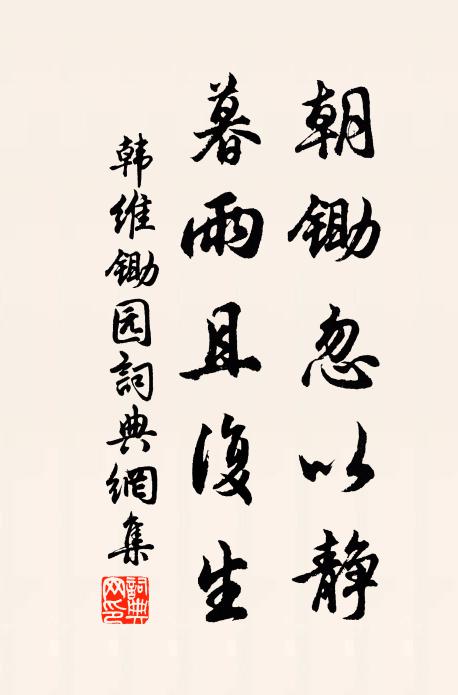 朝锄忽以静
暮雨且復生
韩维锄园詞典網集
詞典网印